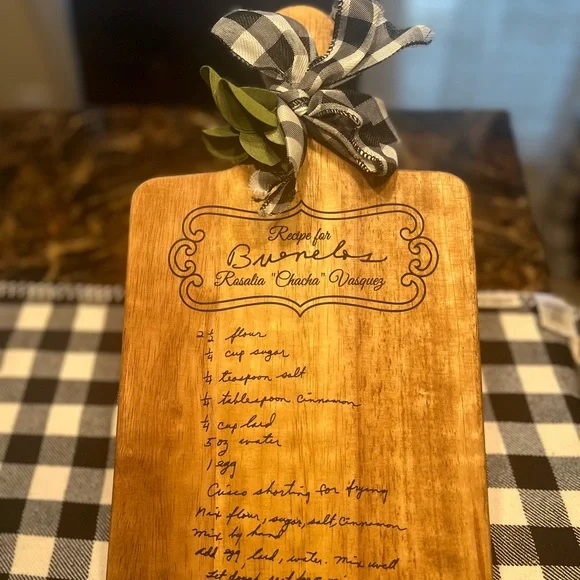 Recipe for
Buenelos
Rosalia "Chacha" Vasquez
2 ½ flour
¼ cup sugar
¼ teaspoon salt
¼ tablespoon cinnamon
¼ cup lard
5 oz water
1 egg
Crisco shorting for frying
Mix flour, sugar, salt cinnamon
Mix by hand
add egg, lard, water. Mix well
Let dough